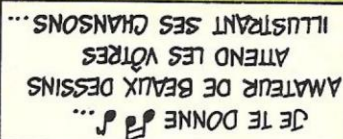 JE TE DONNE ♫ ♪...
AMATEUR DE BEAUX DESSINS
ATTEND LES VÔTRES
ILLUSTRANT SES CHANSONS...